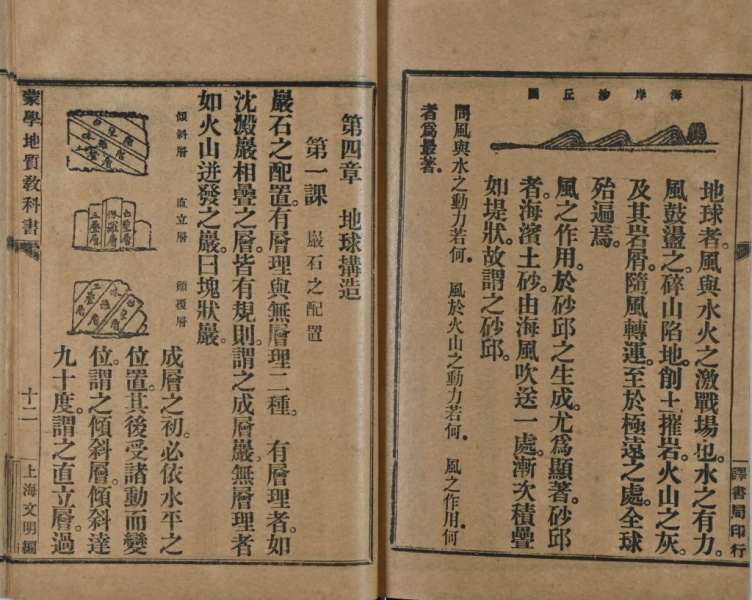 海岸沙丘圖
地球者。風與水火之激戰場也。水之有力。
風鼓盪之。碎山陷地。削土摧岩。火山之灰。
及其岩屑。隨風轉運。至於極遠之處。全球
殆遍焉。
風之作用。於砂邱之生成。尤爲顯著。砂邱
者。海濱土砂。由海風吹送一處。漸次積疊
如堤狀。故謂之砂邱。
問風與水之動力若何。 風於火山之動力若何。 風之作用。何
者爲最著。
譯書局印行
第四章 地球構造
第一課 巖石之配置
巖石之配置。有層理與無層理二種。 有層理者。如
沈澱巖相疊之層。皆有規則。謂之成層巖。無層理者
如火山迸發之巖。曰塊狀巖。
傾斜層 直立層 顛覆層
成層之初。必依水平之
位置。其後受諸動而變
位。謂之傾斜層。傾斜達
九十度。謂之直立層。過
蒙學地質教科書
十二
上海文明編